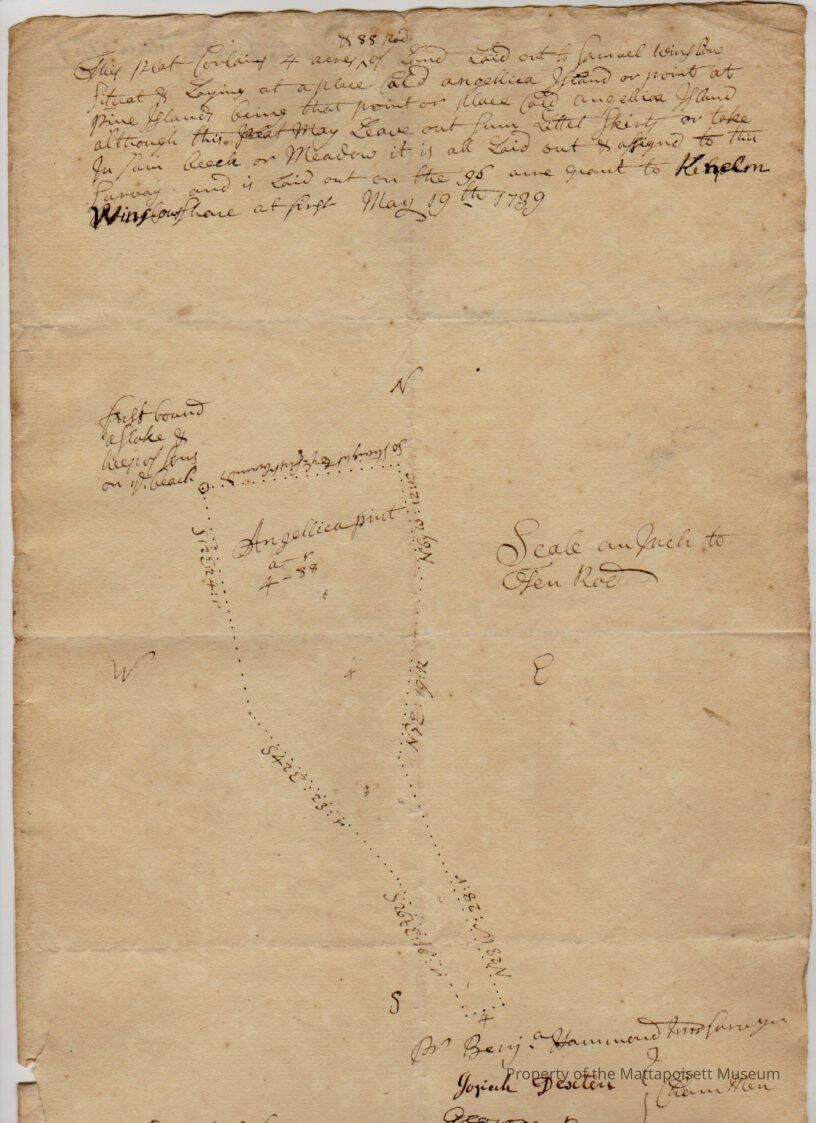 & 88 Rod
This plat Contains 4 acres ^ of Land Laid out to Samuel Winslow
Situat & Laying at a place Cald angellica Island or point at
Pine Islands being that point or place Cald angellica Island
although this plat May Leave out sum Littel Skirts or take
In sum beech or Meadow it is all Laid out & asigned to this
Survay and is Laid out on the 96 acre grant to Kenelm
Winslow share at first May 19th 1739
N
first bound
a stake &
heep of stons
on ye beach
So straight to ye first bound
Angellica pint
a - r
4 - 88
Scale an Inch to
Ten Rod
W
E
S 42 E : 23 : r
S
Pr Benja Hammond Jun Survayr
Josiah Dexter
Chain Men
Property of the Mattapoisett Museum